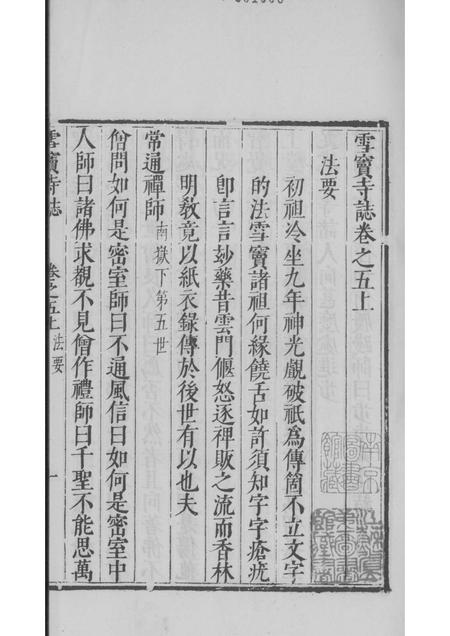 雪竇寺誌卷之五上
法要
初祖冷坐九年神光覷破祇為傳箇不立文字
的法雪竇諸祖何緣饒舌如許須知字字瘡疣
即言言妙藥昔雲門偃怒逐裨販之流而香林
明教竟以紙衣錄傳於後世有以也夫
常通禪師南嶽下第五世
僧問如何是密室師曰不通風信曰如何是密室中
人師曰諸佛求覩不見僧作禮師曰千聖不能思萬
雪竇寺誌 卷之五上法要 一